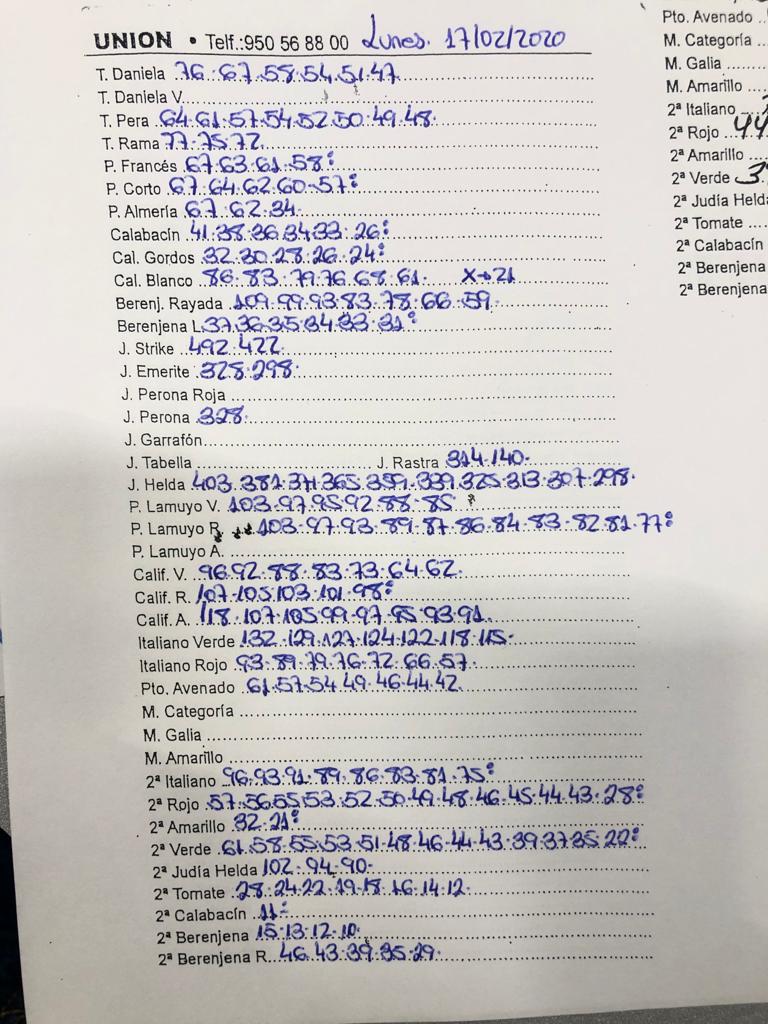 UNION • Telf.:950 56 88 00 Lunes. 17/02/2020
T. Daniela 76.67.58.54.51.47
T. Daniela V
T. Pera 64.61.57.54.52.50.49.48.
T. Rama 77.75.72.
P. Francés 67.63.61.58:
P. Corto 67.64.62.60.57:
P. Almería 67.62.34
Calabacín 41.38.36.34.33.26:
Cal. Gordos 32.30.28.26.24:
Cal. Blanco 86.83.79.76.68.61. X→21
Berenj. Rayada 109.99.93.83.78.66.59.
Berenjena L 37.36.35.34.33.31:
J. Strike 492.422.
J. Emerite 328.298.
J. Perona Roja
J. Perona 328.
J. Garrafón
J. Tabella J. Rastra 314.140.
J. Helda 403.381.371.365.359.339.325.313.307.298.
P. Lamuyo V. 103.97.95.92.88.85
P. Lamuyo R. 103.97.93.89.87.86.84.83.82.81.77:
P. Lamuyo A.
Calif. V. 96.92.88.83.73.64.62.
Calif. R. 107.105.103.101.98:
Calif. A. 118.107.105.99.97.95.93.91.
Italiano Verde 132.129.127.124.122.118.115.
Italiano Rojo 93.89.79.76.72.66.57.
Pto. Avenado 61.57.54.49.46.44.42.
M. Categoría
M. Galia
M. Amarillo
2ª Italiano 96.93.91.89.86.83.81.75:
2ª Rojo 57.56.55.53.52.50.49.48.46.45.44.43.28:
2ª Amarillo 32.21:
2ª Verde 61.58.55.53.51.48.46.44.43.39.37.35.22:
2ª Judía Helda 102.94.90.
2ª Tomate 28.24.22.19.18.16.14.12.
2ª Calabacín 11:
2ª Berenjena 15.13.12.10.
2ª Berenjena R. 46.43.39.35.29.
Pto. Avenado
M. Categoría
M. Galia
M. Amarillo
2ª Italiano
2ª Rojo 44
2ª Amarillo
2ª Verde
2ª Judía Held
2ª Tomate
2ª Calabacín
2ª Berenjena
2ª Berenjena